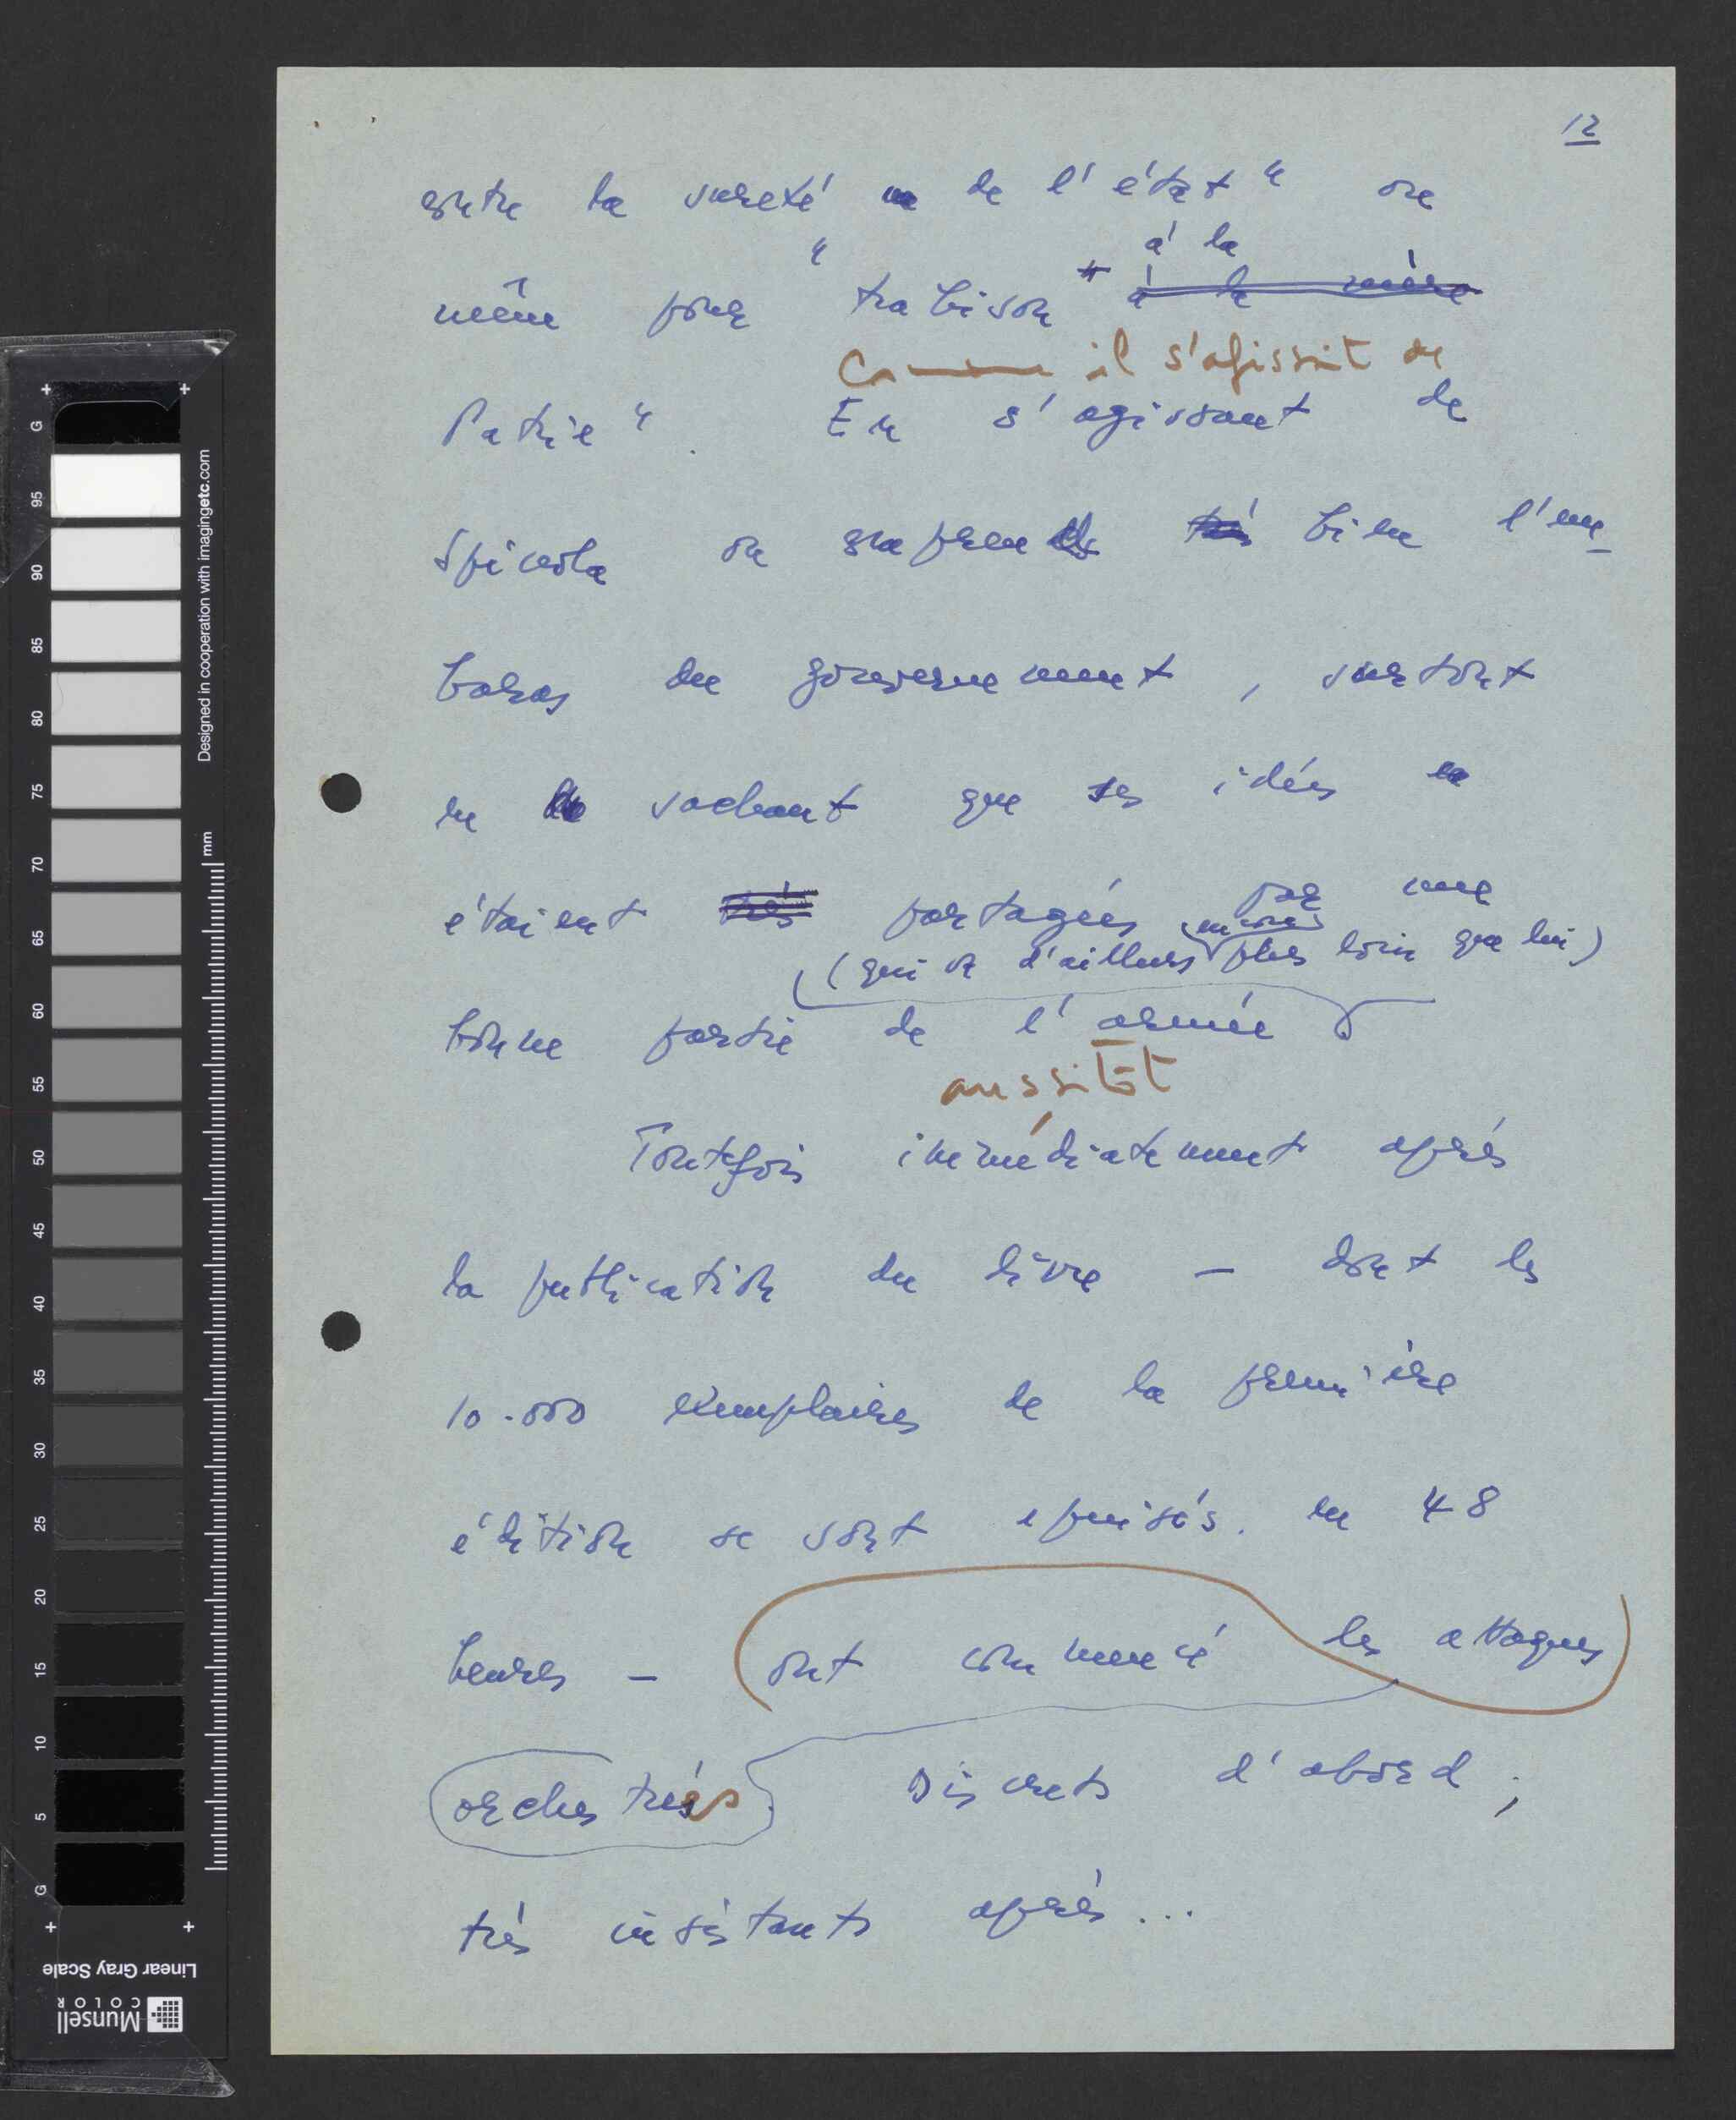 12
contre la sureté de l'état" ou
à la
même pour "trahison" à la mère
Comme il s'agissait de
Patrie". En s'agissant de
Spinola on comprend très bien l'em-
baras du gouvernement, surtout
en sachant que ses idées
étaient très partagées par une
encore
(qui va d'ailleurs plus loin que lui)
bonne partie de l'armée
aussitôt
Toutefois immédiatement après
la publication du livre - dont les
10.000 exemplaires de la première
édition se sont epuisés. en 48
heures - ont commencé les attaques
orchestrées Discrets d'abord;
très insistants après...
Designed in cooperation with imagingetc.com
mm
G 95 90 85 80 75 70 65 60 55 50 45 40 35 30 25 20 15 10 5 G
Linear Gray Scale
Munsell
COLOR